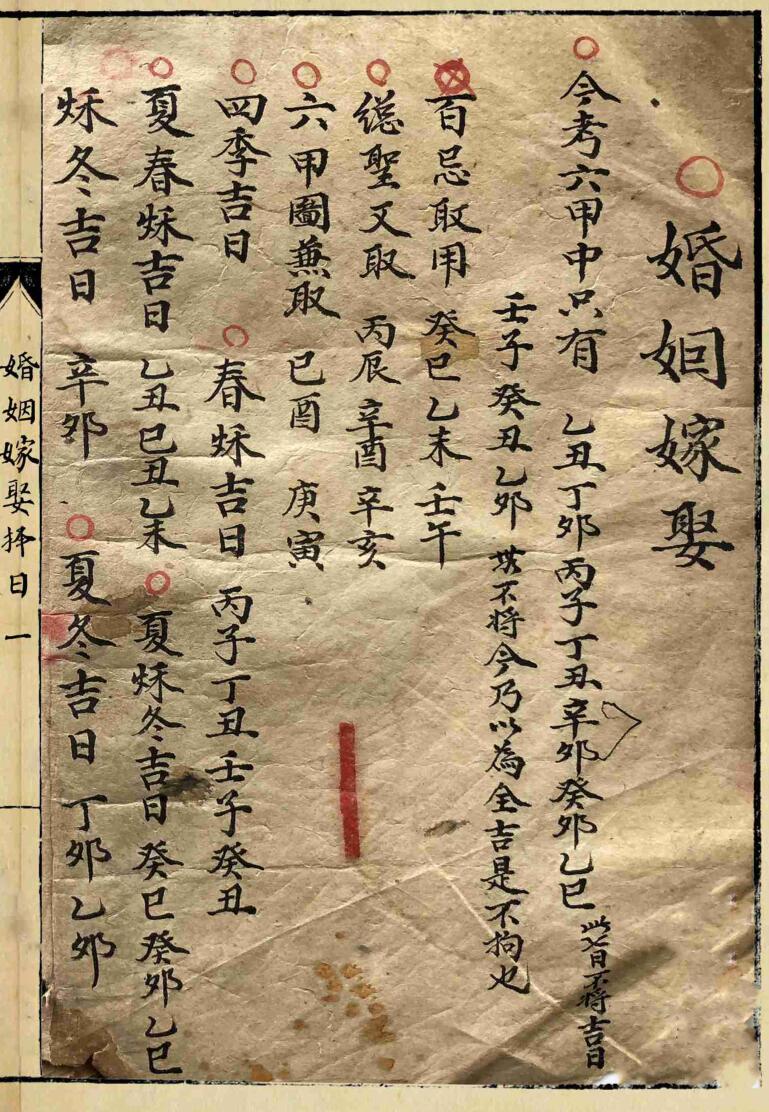 婚姻嫁娶
今考六甲中只有 乙丑丁卯丙子丁丑辛卯癸卯乙巳 此七日不將吉日
壬子癸丑乙卯 不將今乃以為全吉是不拘也
百忌取用 癸巳乙未壬午
總聖又取 丙辰辛酉辛亥
六甲圖兼取 巳酉 庚寅
四季吉日 春秌吉日 丙子丁丑壬子癸丑
夏春秌吉日 乙丑巳丑乙未 夏秌冬吉日 癸巳癸卯乙巳
秌冬吉日 辛卯 夏冬吉日 丁卯乙卯
婚姻嫁娶择日 一